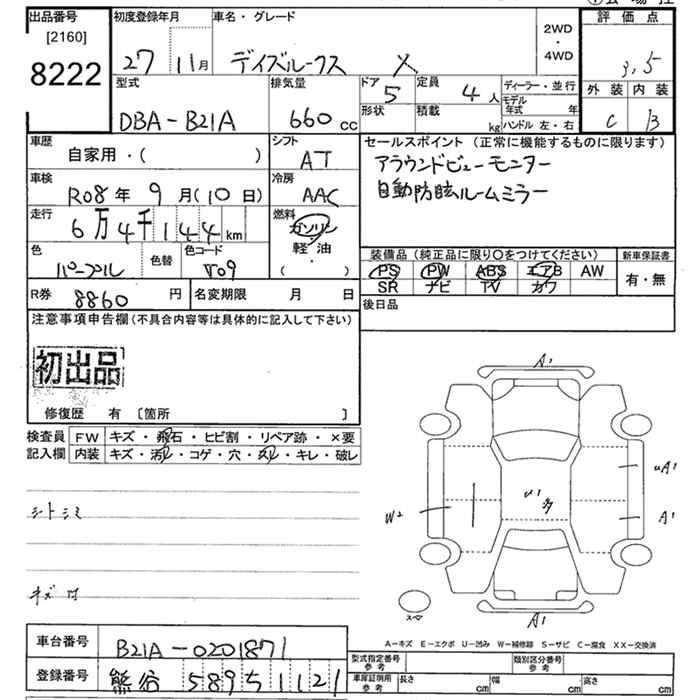 出品番号 初度登録年月 車名・グレード 評価点
[2160]
8222
27 11月 デイズルークス X
2WD
・
4WD
3.5
型式 排気量 ドア 定員 ディーラー・並行 外装 内装
DBA-B21A 660 cc 5 4人
形状 積載 kg
モデル年式 年
ハンドル 左・右
C B
車歴 シフト セールスポイント(正常に機能するものに限ります)
自家用・( ) AT
アラウンドビューモニター
自動防眩ルームミラー
車検 冷房
R08年 9月(10日) AAC
走行 燃料
6万4千144km
ガソリン
軽・油
( )
色 色替 色コード
パープル V09
装備品(純正品に限り○をつけてください) 新車保証書
PS PW ABS エアB AW
SR ナビ TV カワ
有・無
R券 8860円 名変期限 月 日
後日品
注意事項申告欄(不具合内容等は具体的に記入して下さい)
初出品
修復歴 有 [箇所 ]
検査員 FW キズ・飛石・ヒビ割・リペア跡・×要
記入欄 内装 キズ・汚レ・コゲ・穴・スレ・キレ・破レ
シートシミ
キズ 凹
A1
uA1
u1 多
W2
A1
スペア
A1
A-キズ E-エクボ U-凹み W-補修跡 S-サビ C-腐食 XX-交換済
車台番号 B21A-0201871
登録番号 熊谷 589 5 1121
型式指定番号 参考 類別区分番号 参考
車庫証明用 参考 長さ cm 幅 cm 高さ cm